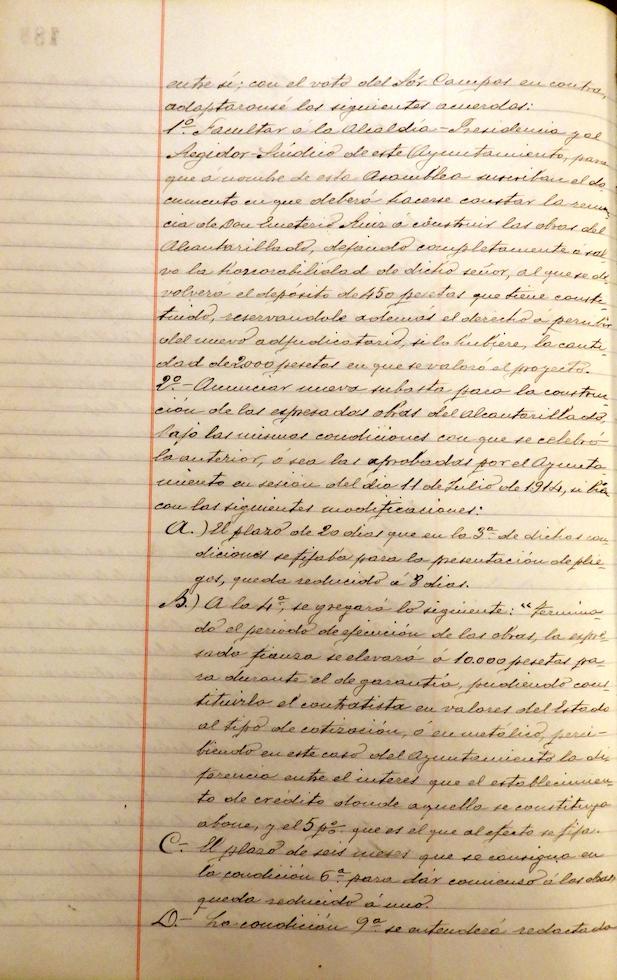 entre sí; con el voto del Sór Campos en contra,
adaptaronsé los siguientes acuerdos:
1º Facultar á la Alcaldía-Presidencia y al
Regidor-Síndico de este Ayuntamiento, para
que á nombre de esta Asamblea suscriban el do
cumento en que deberá hacerse constar la renun-
cia de Don Emeterio Ruiz á construir las obras del
Alcantarillado, dejando completamente á sal
vo la honorabilidad de dicho señor, al que se de
volverá el depósito de 450 pesetas que tiene consti
tuido, reservandole además el derecho á percibir
del nuevo adjudicatario, si lo hubiere, la canti-
dad de 2.000 pesetas en que se valoró el proyecto.
2º.- Anunciar nueva subasta para la construc-
ción de las espresadas obras del Alcantarillado,
bajo las mismas condiciones con que se celebró
la anterior, ó sea las aprobadas por el Ayunta-
miento en sesión del día 11 de Julio de 1914, si bien
con las siguientes modificaciones:
A.) El plazo de 20 dias que en la 3ª de dichas con-
diciones se fijaba para la presentación de plie-
gos, queda reducido á 8 dias.
B.) A la 4ª, se gregará lo siguiente: "Termina-
do el periodo de ejecución de las obras, la espre-
sada fianza se elevará á 10.000 pesetas pa-
ra durante el de garantía, pudiendo cons-
tituirla el contratista en valores del Estado
al tipo de cotización, ó en metálico, perci-
biendo en este caso del Ayuntamiento la di-
ferencia entre el interes que el establecimien-
to de crédito donde aquella se constituya
abone, y el 5 p% que es el que al efecto se fija.
C.- El plazo de seis meses que se consigna en
la condición 6ª para dár comienso á las obras
queda reducido á uno.
D.- La condición 9ª se entenderá redactada